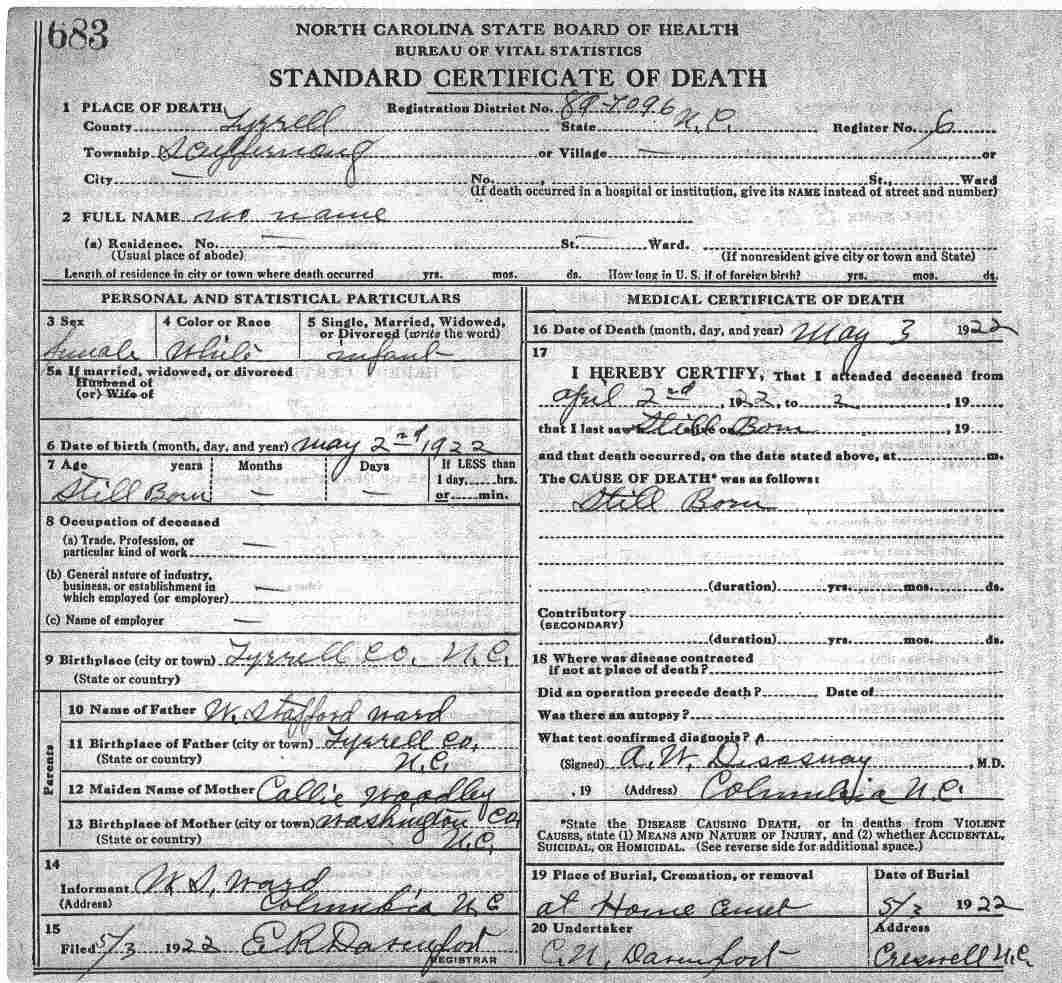 683
NORTH CAROLINA STATE BOARD OF HEALTH
BUREAU OF VITAL STATISTICS
STANDARD CERTIFICATE OF DEATH
1 PLACE OF DEATH Registration District No. 89-7096
County Tyrrell State N.C. Register No. 6
Township Scuppernong or Village — or
City — No. , St., Ward
(If death occurred in a hospital or institution, give its NAME instead of street and number)
2 FULL NAME no name
(a) Residence. No. — St. — Ward.
(Usual place of abode) (If nonresident give city or town and State)
Length of residence in city or town where death occurred yrs. mos. ds. How long in U. S. if of foreign birth? yrs. mos. ds.
PERSONAL AND STATISTICAL PARTICULARS
3 Sex 4 Color or Race 5 Single, Married, Widowed, or Divorced (write the word)
Female White infant
5a If married, widowed, or divorced
Husband of
(or) Wife of
6 Date of birth (month, day, and year) May 2nd 1922
7 Age years Months Days If LESS than
1 day, hrs.
or min.
Still Born — —
8 Occupation of deceased
(a) Trade, Profession, or
particular kind of work —
(b) General nature of industry,
business, or establishment in
which employed (or employer) —
(c) Name of employer —
9 Birthplace (city or town) Tyrrell Co. N.C.
(State or country)
Parents
10 Name of Father W. Stafford Ward
11 Birthplace of Father (city or town) Tyrrell Co,
(State or country) N.C.
12 Maiden Name of Mother Callie Woodley
13 Birthplace of Mother (city or town) Washington Co
(State or country) N.C.
14
Informant W. S. Ward
(Address) Columbia N C
15
Filed 5/3 1922 E R Davenport
REGISTRAR
MEDICAL CERTIFICATE OF DEATH
16 Date of Death (month, day, and year) May 3 1922
17
I HEREBY CERTIFY, That I attended deceased from
April 2nd, 1922, to 2, 19
that I last saw h alive on Still Born, 19
and that death occurred, on the date stated above, at m.
The CAUSE OF DEATH* was as follows:
Still Born
(duration) yrs. mos. ds.
Contributory
(SECONDARY)
(duration) yrs. mos. ds.
18 Where was disease contracted
if not at place of death?
Did an operation precede death? Date of
Was there an autopsy?
What test confirmed diagnosis?
(Signed) A. W. Disosway, M.D.
, 19 (Address) Columbia N.C.
*State the DISEASE CAUSING DEATH, or in deaths from VIOLENT
CAUSES, state (1) MEANS AND NATURE OF INJURY, and (2) whether ACCIDENTAL,
SUICIDAL, OR HOMICIDAL. (See reverse side for additional space.)
19 Place of Burial, Cremation, or removal Date of Burial
at Home 5/3 1922
20 Undertaker Address
C. N. Davenport Creswell N.C.